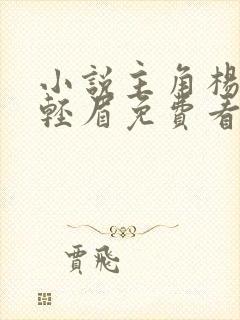 小説主角楊
輕眉免費看
賈飛